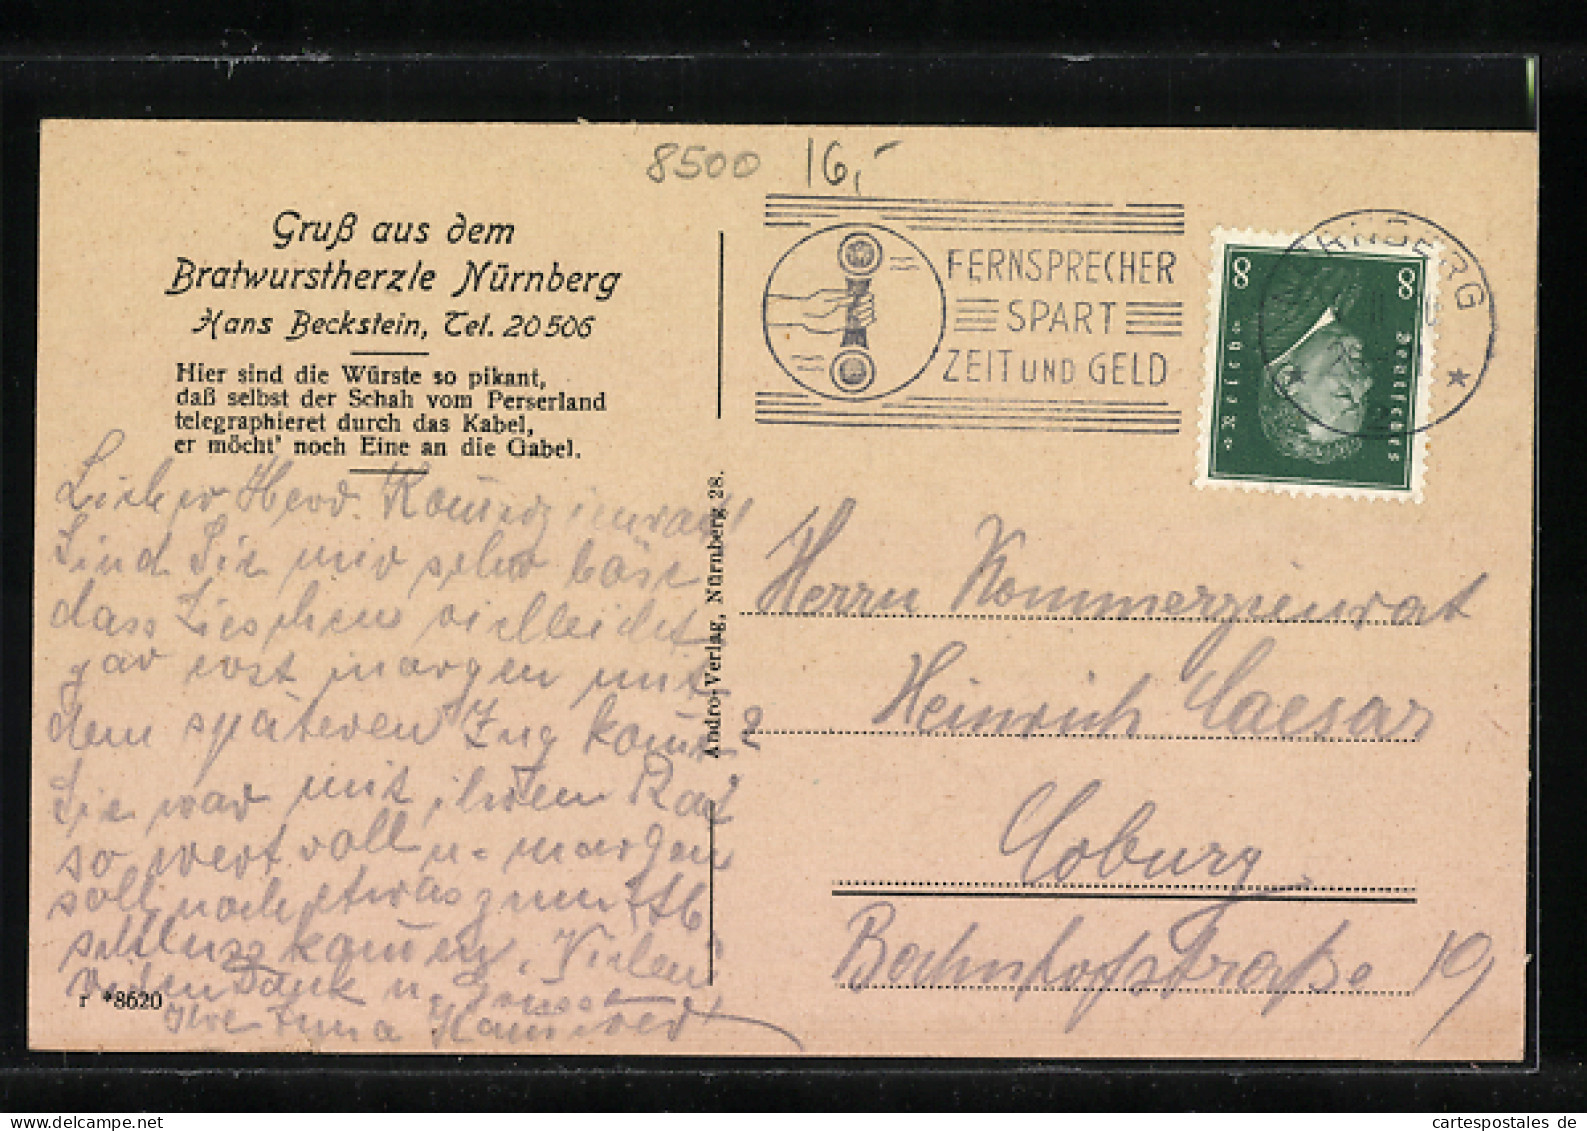 8500 16,-
Gruß aus dem
Bratwurstherzle Nürnberg
Hans Beckstein, Tel. 20506
Hier sind die Würste so pikant,
daß selbst der Schah vom Perserland
telegraphieret durch das Kabel,
er möcht' noch Eine an die Gabel.
Lieber Herr Komerzienrat!
Sind Sie mir sehr böse
dass Lieschen vielleicht
gar erst morgen mit
dem späteren Zug komt?
Sie war mit ihrem Rat
so wertvoll u. morgen
soll noch etwas zum
schluss komen. Vielen
vielen Dank u.
Ihre
r *8620
Andro-Verlag, Nürnberg 28.
FERNSPRECHER
SPART
ZEIT UND GELD
NÜRNBERG
8 8
Deutsches
Reich
Herrn Kommerzienrat
Heinrich Caesar
Coburg
Bahnhofstraße 19
www.delcampe.net
cartespostales de